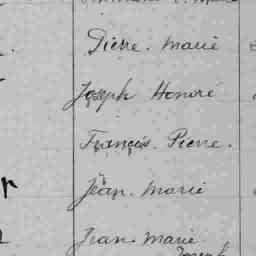 Pierre. Marie
Joseph Honoré
François. Pierre.
Jean. Marie
Jean Marie
Joseph